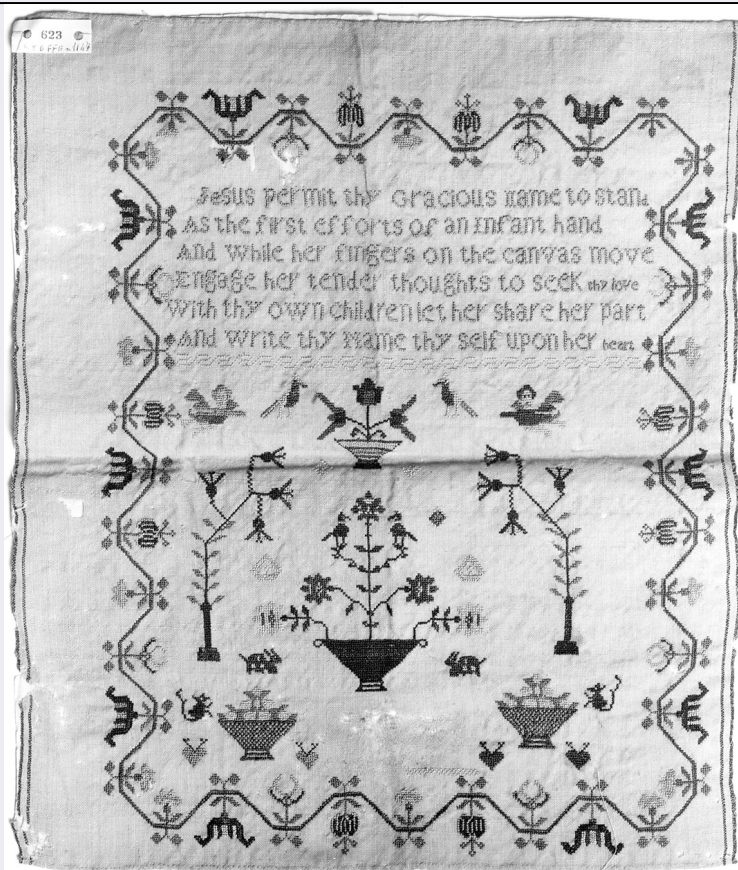 623
Jesus permit thy Gracious Name to stand
As the first efforts of an Infant hand
And While her fingers on the canvas move
Engage her tender thoughts to seek thy love
With thy own children let her share her part
And Write thy Name thy self upon her heart